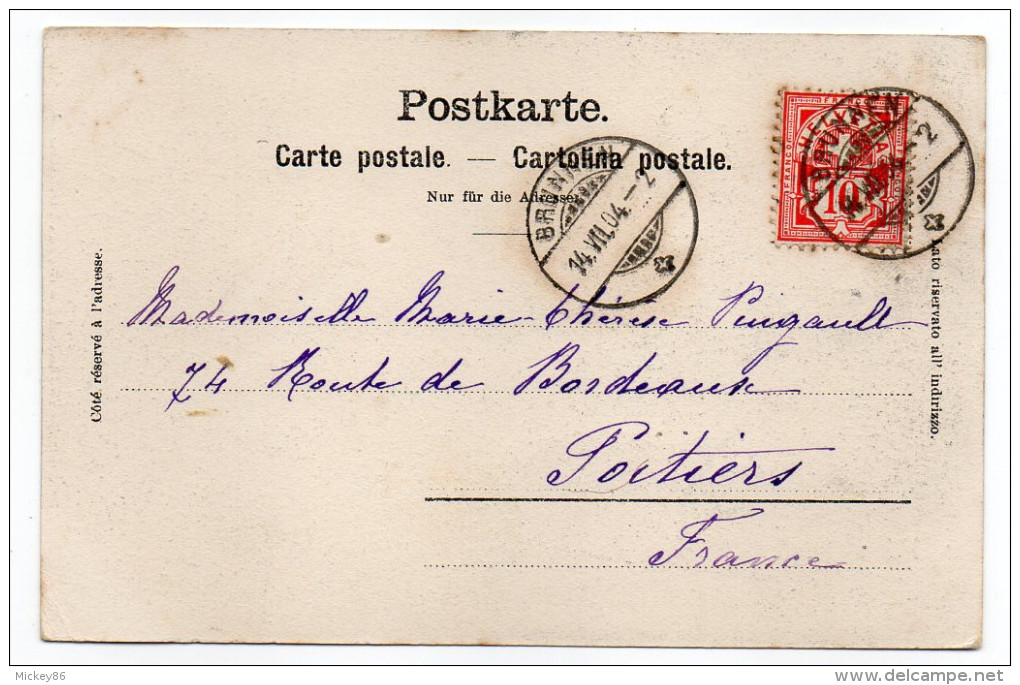 Postkarte.
Carte postale. — Cartolina postale.
Nur für die Adresse.
BRUNNEN
14.VII.04.–2
FRANCO
HELVETIA
FRANCO
10
BRUNNEN
14.VII.04.–2
Côté réservé à l'adresse.
Lato riservato all' indirizzo.
Mademoiselle Marie-Thérèse Pingault
74 Route de Bordeaux
Poitiers
France
Mickey86
www.delcampe.net